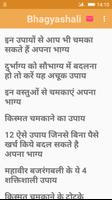 14:10
Bhagyashali
इन उपायों से आप भी चमका
सकते हैं अपना भाग्य
दुर्भाग्य को सौभाग्य में बदलना
हो तो करें यह अचूक उपाय
इन वस्तुओं से चमकाएं अपना
भाग्य
किस्मत चमकाने का उपाय
12 ऐसे उपाय जिनसे बिना पैसे
खर्च किये बदल सकते है
अपना भाग्य
महावीर बजरंगबली के ये 4
शक्तिशाली उपाय
किस्मत चमकाने के टोटके